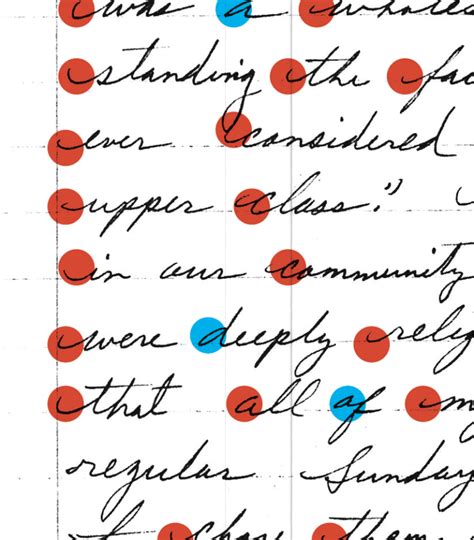 was a
standing the fac
ever considered
upper class."
in our community
were deeply relig
that all of m
regular Sunday